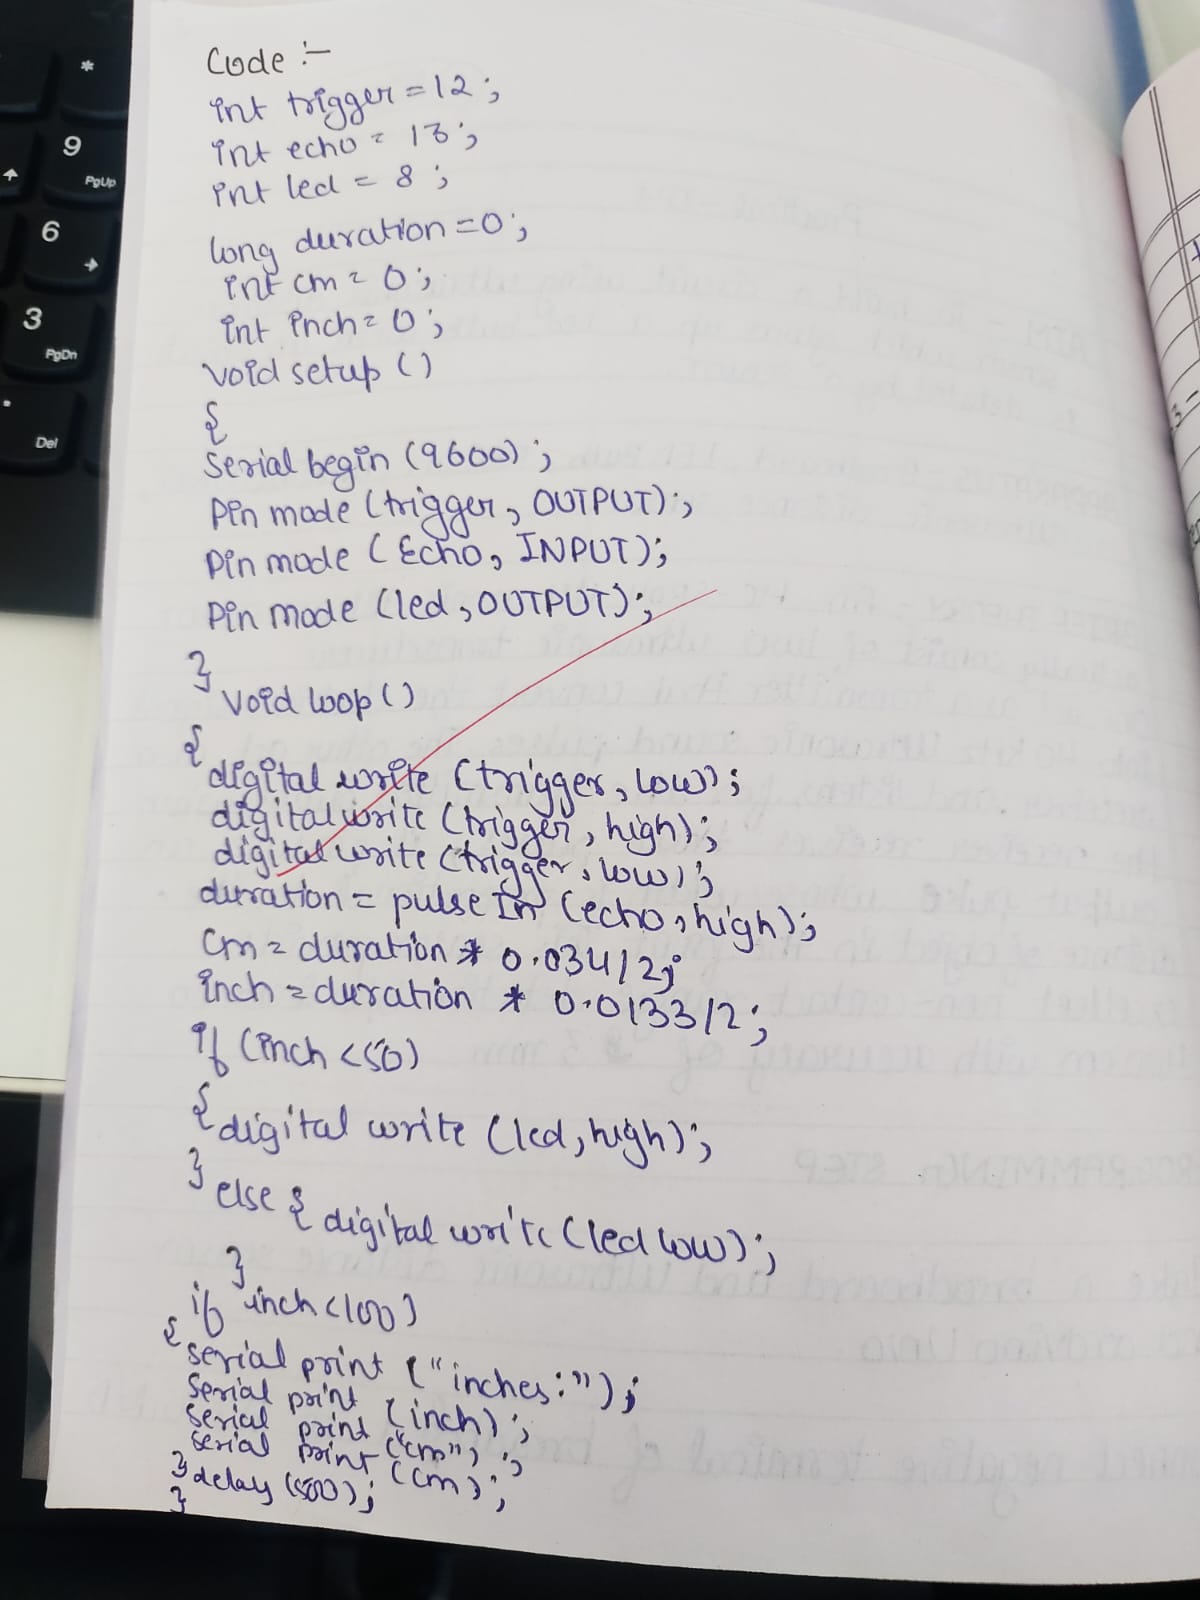 *
9
PgUp
6
3
PgDn
Del
Code :-
int trigger = 12 ;
int echo = 13 ;
int led = 8 ;
long duration = 0 ;
int cm = 0 ;
int inch = 0 ;
void setup ()
{
Serial begin (9600) ;
Pin mode (trigger, OUTPUT) ;
Pin mode (Echo, INPUT) ;
Pin mode (led, OUTPUT) ;
}
void loop ()
{
digital write (trigger, low) ;
digital write (trigger, high) ;
digital write (trigger, low) ;
duration = pulse In (echo, high) ;
cm = duration * 0.034/2 ;
inch = duration * 0.0133/2 ;
if (inch < 50)
{ digital write (led, high) ;
} else { digital write (led low) ;
}
if inch < 100)
{ serial print ("inches:") ;
Serial print (inch) ;
serial print ("cm") ;
serial print (cm) ;
} delay (500) ;
}